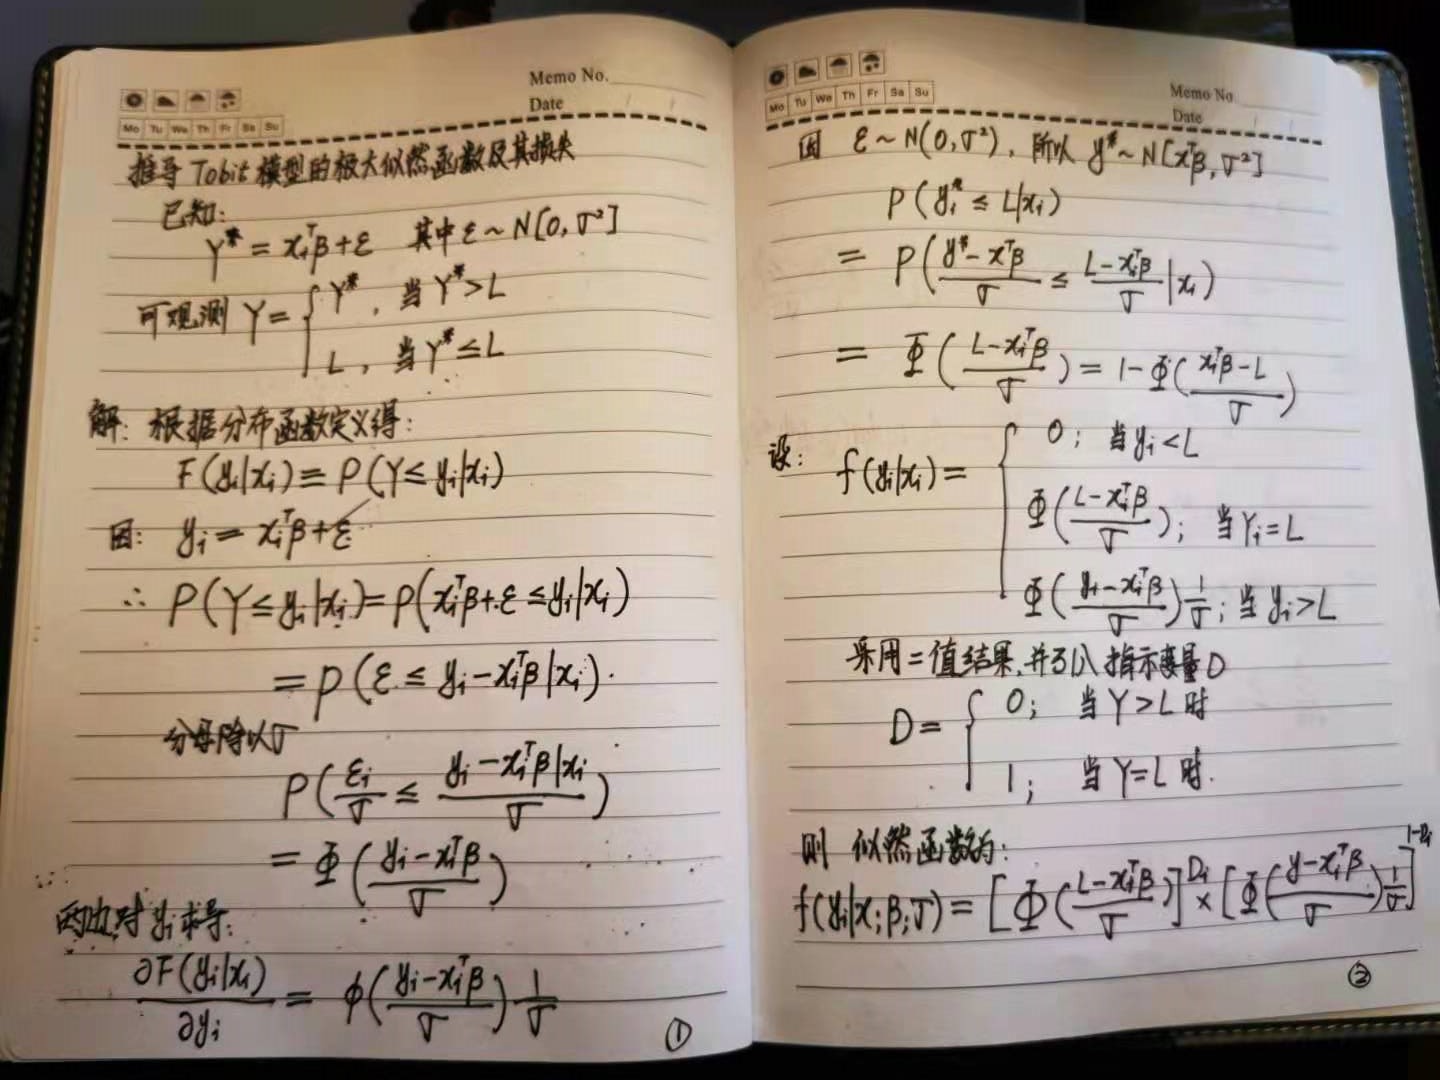 Memo No.
Date
Mo Tu We Th Fr Sa Su
推导Tobit模型的极大似然函数及其损失
已知:
Y* = xᵢᵀβ+ε 其中ε~N[0,σ²]
可观测 Y= { Y*, 当Y*>L
L, 当Y*≤L
解: 根据分布函数定义得:
F(yᵢ|xᵢ)≡P(Y≤yᵢ|xᵢ)
因: yᵢ= xᵢᵀβ+ε
∴ P(Y≤yᵢ|xᵢ)=P(xᵢᵀβ+ε≤yᵢ|xᵢ)
=P(ε≤yᵢ-xᵢᵀβ|xᵢ).
分母除以σ
P(εᵢ/σ ≤ (yᵢ-xᵢᵀβ|xᵢ)/σ)
= Φ((yᵢ-xᵢᵀβ)/σ)
两边对yᵢ求导:
∂F(yᵢ|xᵢ)/∂yᵢ = ϕ((yᵢ-xᵢᵀβ)/σ) 1/σ
①
Memo No
Date
Mo Tu We Th Fr Sa Su
因 ε~N(0,σ²), 所以 y*~N[xᵢᵀβ,σ²]
P(yᵢ*≤L|xᵢ)
= P((y*-xᵀβ)/σ ≤ (L-xᵢᵀβ)/σ |xᵢ)
= Φ((L-xᵢᵀβ)/σ) = 1-Φ((xᵢᵀβ-L)/σ)
设: f(yᵢ|xᵢ)= { 0; 当yᵢ<L
Φ((L-xᵢᵀβ)/σ); 当Yᵢ=L
Φ((yᵢ-xᵢᵀβ)/σ)1/σ; 当yᵢ>L
采用二值结果,并引入指示变量D
D= { 0; 当Y>L时
1; 当Y=L时.
则 似然函数为:
f(yᵢ|x;β;σ)= [Φ((L-xᵢᵀβ)/σ)]^Dᵢ × [Φ((y-xᵢᵀβ)/σ)1/σ]^1-Dᵢ
②